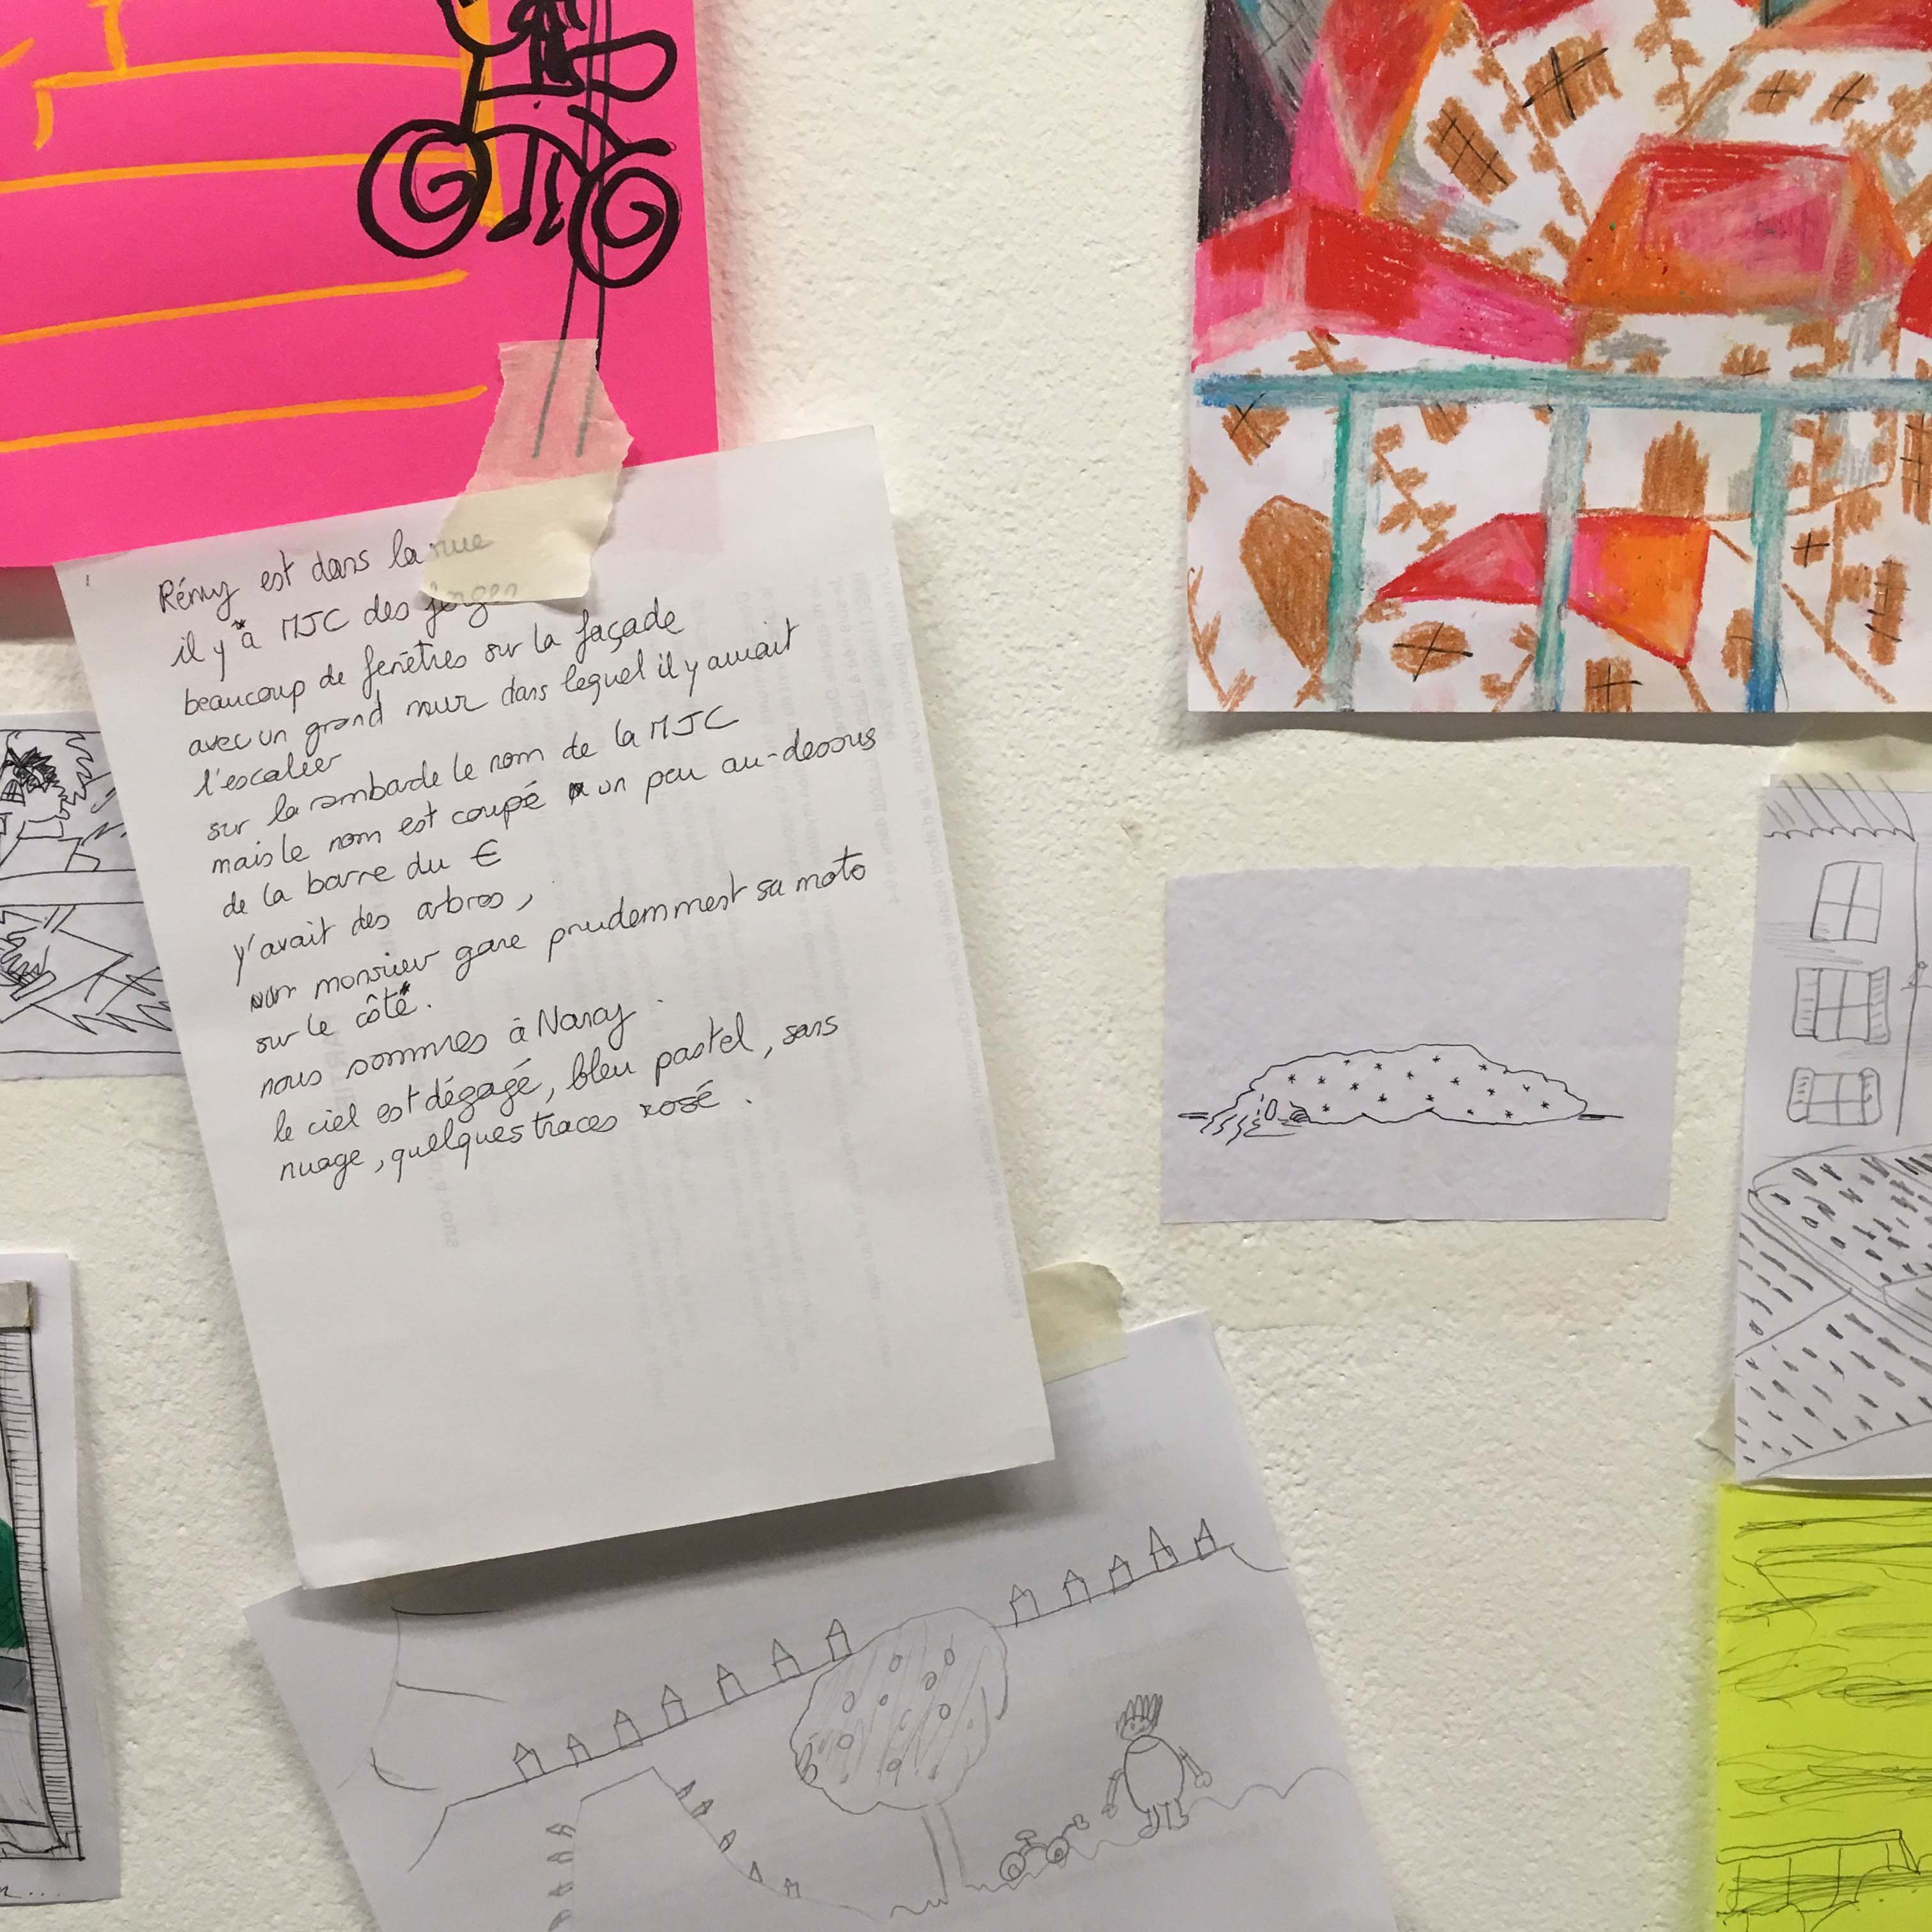 Rémy est dans la rue
il y a MJC des forges
beaucoup de fenêtres sur la façade
avec un grand mur dans lequel il y aurait
l'escalier
sur la rambarde le nom de la MJC
mais le nom est coupé un peu au-dessus
de la barre du €
y'avait des arbres,
un monsieur gare prudemment sa moto
sur le côté.
nous sommes à Nancy.
le ciel est dégagé, bleu pastel, sans
nuage, quelques traces rosé.